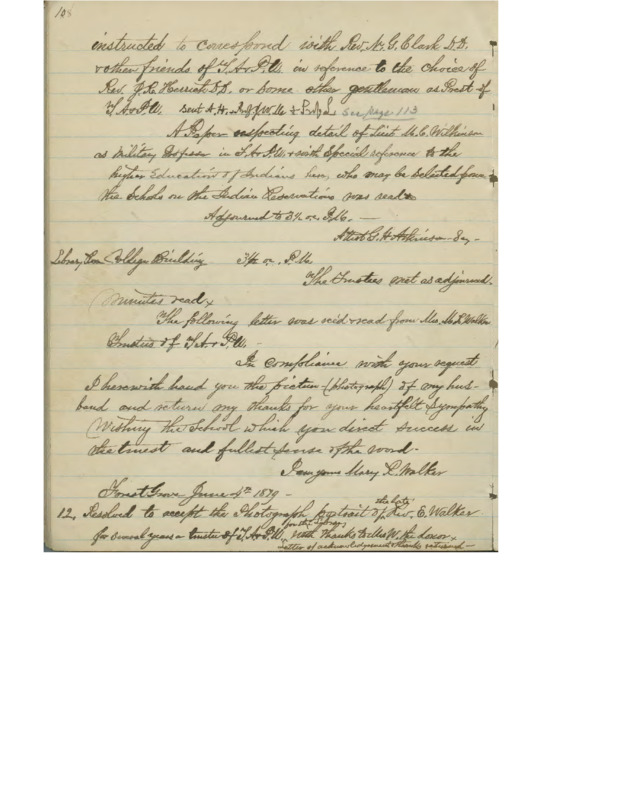 108
instructed to correspond with Rev. N. G. Clark D.D.
& other friends of T. A. & P. U. in reference to the choice of
Rev. J. R. Herrick D.D. or some other gentleman as Prest of
T. A. & P. U. sent A. H. & See page 113
A Paper respecting detail of Lieut M. C. Wilkinson
as Military Professor in T. A. & P. U. & with Special reference to the
higher Education of Indians here, who may be selected from
the Schols on the Indian Reservations was read
Adjourned to 3½ o. P.M. —
Attest G. H. Atkinson Sec –
Library Room College Building 3½ o. P.M.
The Trustees met as adjourned.
Minutes read
The following letter was recd & read from Mrs. M. R. Walker
Trustees of T. A. & P. U. –
In compliance with your request
I herewith hand you the picture – (photograph) of my hus-
band and return my thanks for your heartfelt Sympathy
Wishing the School which you direct success in
the truest and fullest sense of the word.
I am yours Mary R. Walker
Forest Grove June 4th 1879 –
12, Resolved to accept the Photograph portrait of the late Rev. E. Walker
for several years a trustee of T. A. & P. U. for the Library, with thanks to Mrs W. the donor
Letter of acknowledgement & thanks returned –